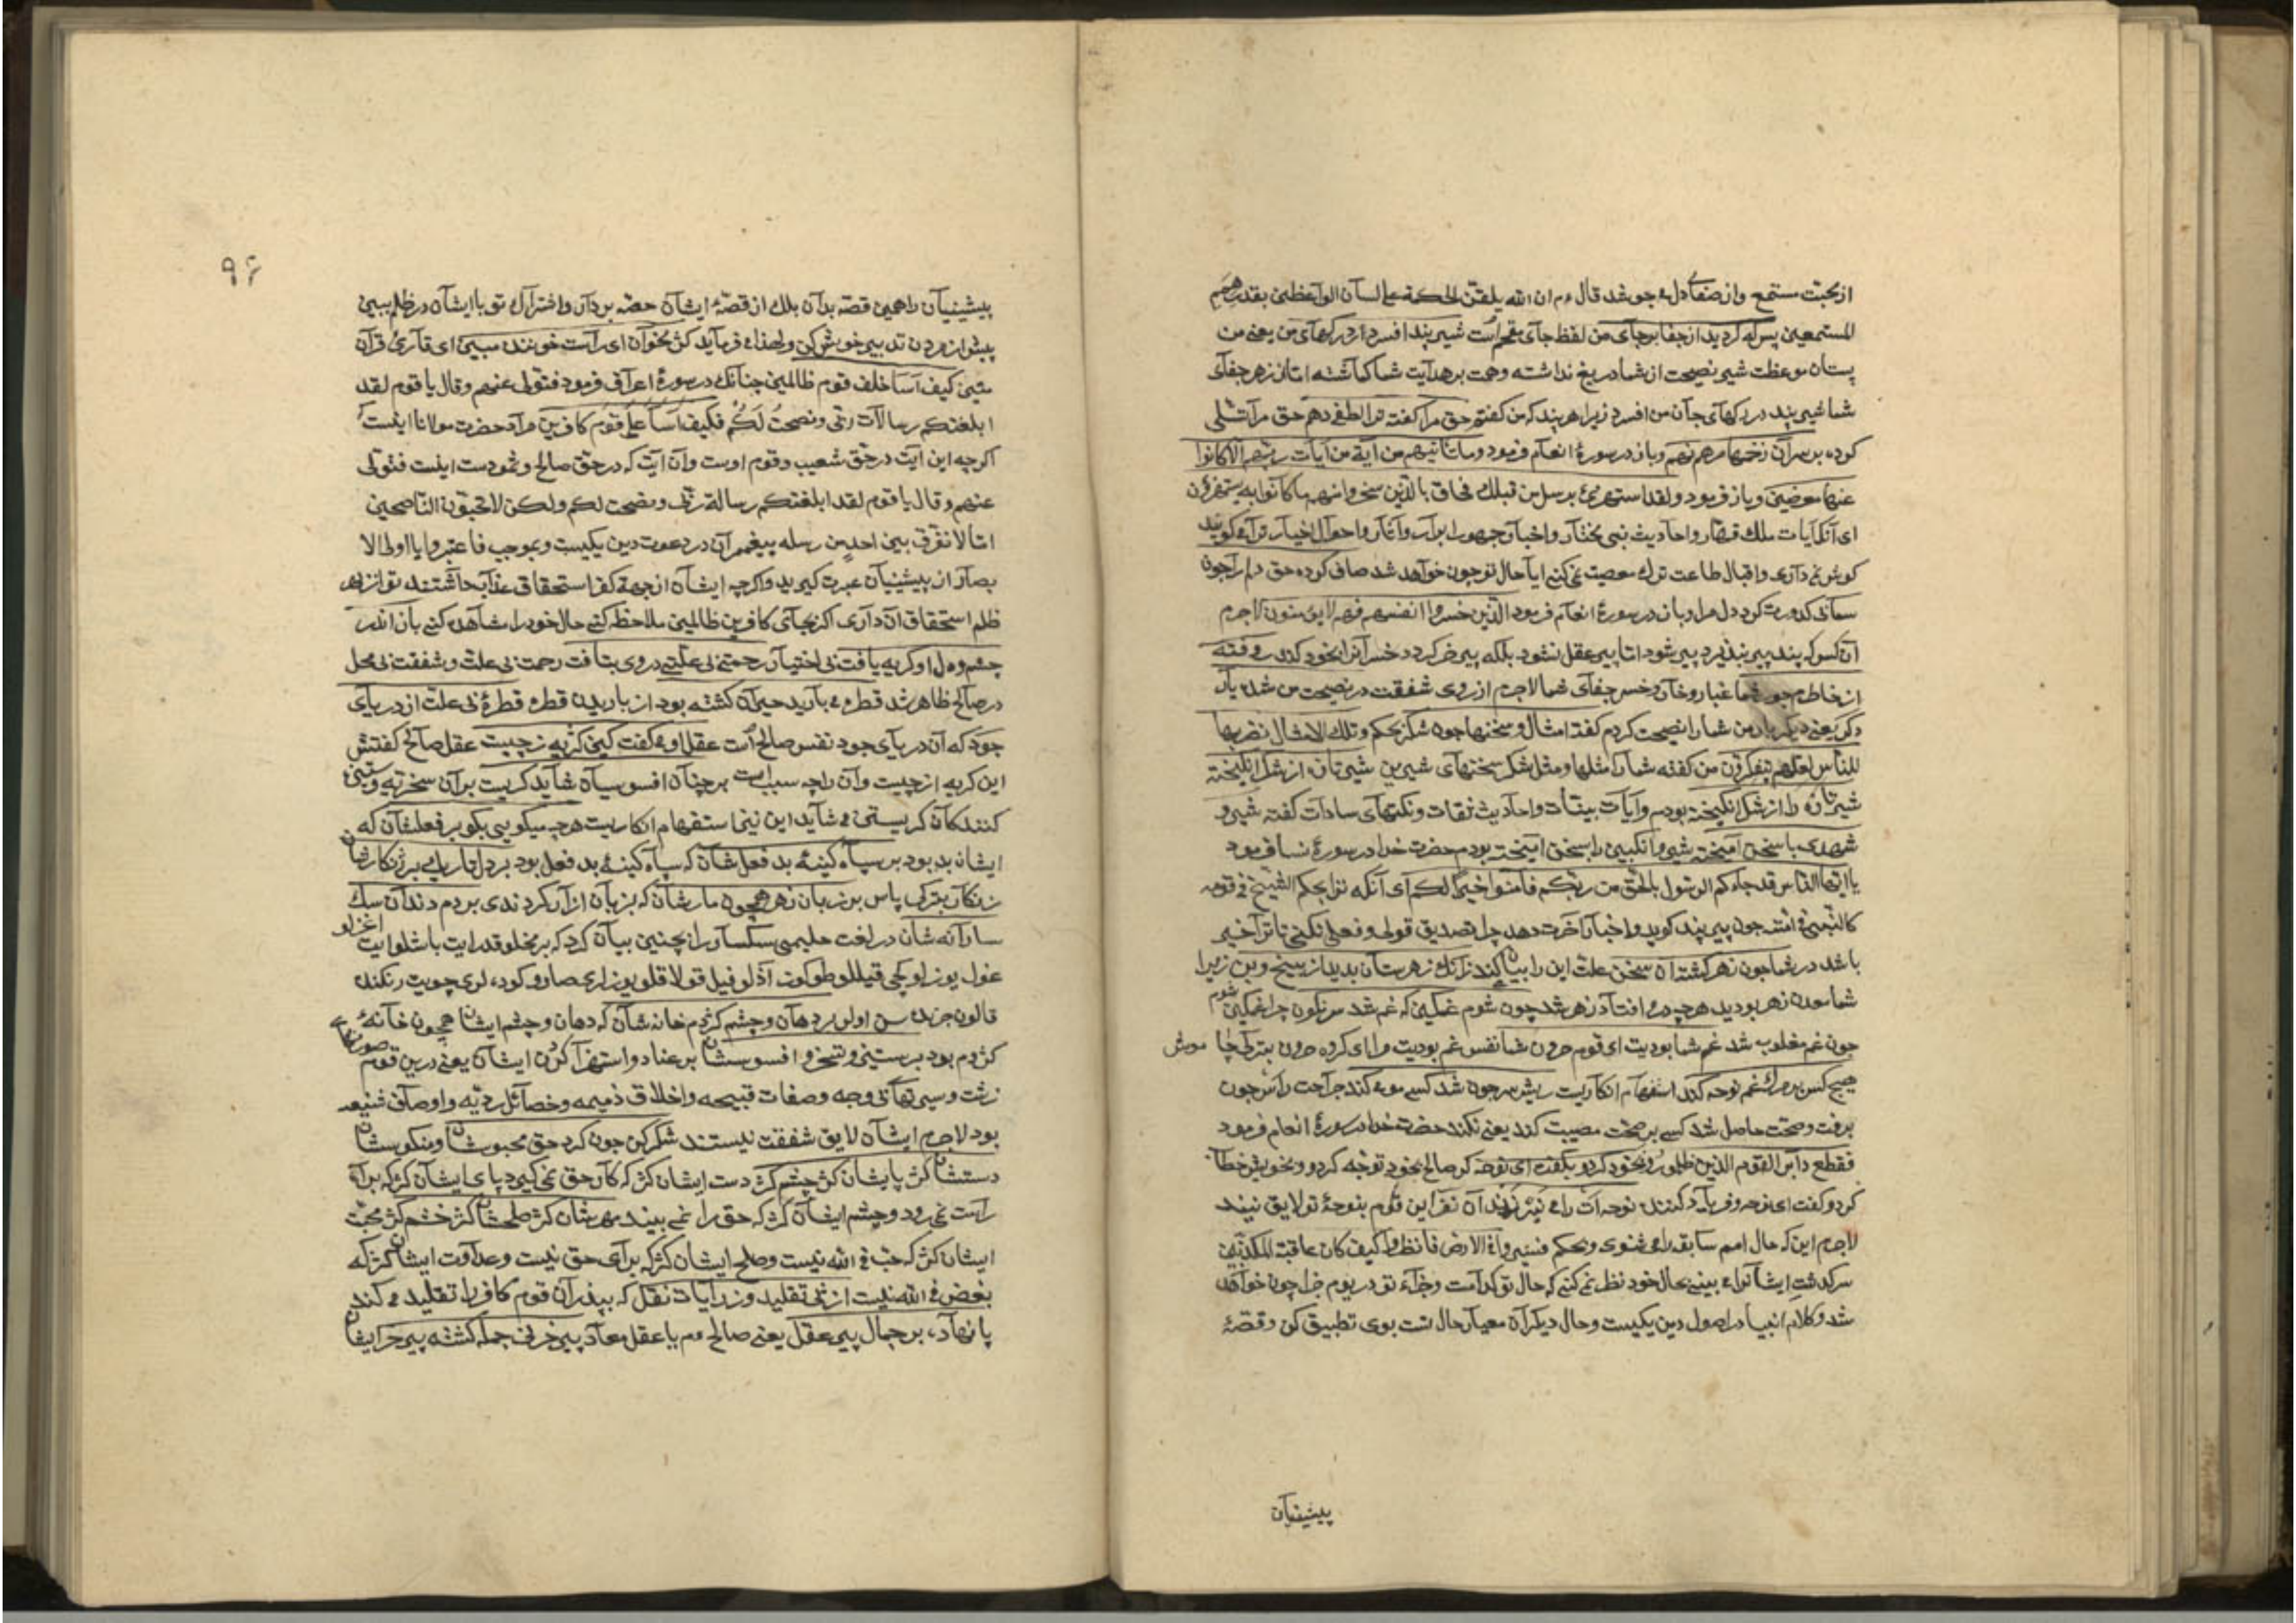 از محبت مستمع و از صفای دل می جوشد قال ءم ان الله یلقن الحکمة علی لسان الواعظین بقدر همم
المستمعین پس که کردید از جفا بر جای من لفظ جای مقحم است شیر پند افسرد در رکهای من یعنی من
پستان موعظت شیر نصیحت از شما دریغ نداشته و همت بر هدایت شما کماشته امتان زهر جفای
شما شیر پند در رکهای جان من افسرد زیرا هر پند که من کفتم حق مرا کفته ترا لطفی دهم حق مرا تسلی
کرده بر سر آن زخمها مرهم نهم و باز در سورۀ انعام فرمود وما تأتیهم من آیة من آیات ربهم الا کانوا
عنها معرضین و باز فرمود ولقد استهزئ برسل من قبلک فحاق بالذین سخروا منهم ما کانوا به یستهزؤن
ای آنک آیات ملک قهار و احادیث نبی مختار و اخبار جمهور ابرار و آثار و احوال اخیار ترا می کویند
کوش نمی داری و اقبال طاعت ترک معصیت نمی کنی ایا حال تو چون خواهد شد صاف کرده حق دلم را چون
سما پاک کدورت کرد دل مرا و باز در سورۀ انعام فرمود الذین خسروا انفسهم فهم لا یؤمنون لاجرم
آن کس که پند پیر نپذیرد پیر شود اما پیر عقل نشود بلکه پیر خر کردد خسرانرا بخود کند روفته
از خاطرم جور شما غبار و خار و خس جفای شما لاجرم از روی شفقت در نصیحت من شده بار
دکر یعنی دیکر بار من شما را نصیحت کردم کفته امثال و سخنها چون شکر بحکم وتلک الامثال نضربها
للناس لعلهم یتفکرون من کفته شما را مثلها و مثل شکر سخنهای شیرین شیر تازه از شکر انکیخته
شیر تازه را از شکر انکیخته بودم و آیات بینات و احادیث ثقات و نکتهای سادات کفته شیر و
شهدی با سخن آمیخته شیر و انکبین را بسخن آمیخته بودم حضرت خدا در سورۀ نسا فرمود
یا ایها الناس قد جاءکم الرسول بالحق من ربکم فآمنوا خیرا لکم ای آنکه ترا بحکم الشیخ فی قومه
کالنبی فی امته چون پیر پند کوید و اخبار آخرت دهد چرا تصدیق قولی و فعلی نکنی تا ترا خیر
باشد در شما چون زهر کشته آن سخن علت این را بیان کند زانک زهرستان بدید از بیخ و بن زیرا
شما معدن زهر بودید هر چه در می افتاد زهر شد چون شوم غمکین که غم شد سرنکون چرا غمکین شوم
چون غم مغلوب شد غم شما بودیت ای قوم حرون شما نفس غم بودیت مرا ای کروه حرون
هیچ کس بر مرک غم نوحه کند استفهام انکاریت ریش سر چون شد کسی مو بر کند جراحت راس چون
برفت و صحت حاصل شد کسی بر صحت مصیبت کند یعنی نکند حضرت خدا در سورۀ انعام فرمود
فقطع دابر القوم الذین ظلموا رو بخود کرد و بکفت ای نوحه کر صالح بخود توجه کرد و بخویش خطاب
کرد و کفت ای نوحه و فریاد کننده نوحه ات را می نیرزند آن نفر این قوم بنوحۀ تو لایق نیند
لاجرم این که حال امم سابقه را می شنوی و بحکم فسیروا فی الارض فانظروا کیف کان عاقبة المکذبین
سرکذشت ایشانرا می بینی بحال خود نظر نمی کنی که حال تو کدامست و جزاء تو در یوم جزا چون خواهد
شد و کلام انبیا در اصول دین یکیست و حال دیکران معیار حال تست بوی تطبیق کن و قصۀ
پیشینیان
۹۶
پیشینیان را همین قصه بدان بلک از قصۀ ایشان حصه بردار و اشتراک تو با ایشان در ظلم ببین
پیش از مردن تدبیر خویش کن و لهذا می فرماید کژ مخوان ای راست خوانندۀ مبین ای قاری قرآن
متین کیف آسا خلف قوم ظالمین چنانک در سورۀ اعراف فرمود فتولی عنهم وقال یا قوم لقد
ابلغتکم رسالات ربی ونصحت لکم فکیف آسا علی قوم کافرین مراد حضرت مولانا اینست
اکرچه این آیت در حق شعیب و قوم اوست و آن آیت که در حق صالح و ثمودست اینست فتولی
عنهم وقال یا قوم لقد ابلغتکم رسالة ربی ونصحت لکم ولکن لا تحبون الناصحین
اما لا نفرق بین احد من رسله پیغمبران در دعوت دین یکیست و بموجب فاعتبروا یا اولی الا
بصار از پیشینیان عبرت کیرید و اکرچه ایشان از جهة کفر استحقاق عذاب داشتند تو از
ظلم استحقاق آن داری اکر بجای کافرین ظالمین ملاحظه کنی حال خود را مشاهده کنی باز اندر
چشم و دل او کریه یافت بی اختیار رحمتی بی علتی در وی بتافت رحمت بی علت و شفقت بی محل
در صالح ظاهر شد قطره می بارید حیران کشته بود از باریدن قطره قطرۀ بی علت از دریای
جود که آن دریای جود نفس صالح است عقل او می کفت کین کریه ز چیست عقل صالح کفتش
این کریه از چیست و آن را چه سبب است بر چنان افسوسیان شاید کریست بر آن سخریه و ستیز
کنندکان کریستن می شاید این نیز استفهام انکاریت بر چه میکویی بکو بر فعلشان که
ایشان بد بود بر سپاه کینۀ بد فعلشان که سپاه کینۀ بد فعل بود بر دل تاریک پر زنکارشان
زنکار بترکی پاس بر زبان زهر همچون مارشان که بزبان آزار کردندی بر دم و دندان سک
سارانه شان در لغت حلیمی سکسار را چنین بیان کرد که
کژدم بود بر ستیز و تسخر و افسوسشان بر عناد و استهزا کردن ایشان یعنی درین قوم
زشت و سیرتهای وجه و صفات قبیحه و اخلاق ذمیمه و خصائل ردیه و اوصاف شنیعه
بود لاجرم ایشان لایق شفقت نیستند شکر کن چون کرد حق محبوسشان و منکوسشان
دستشان کژ پایشان کژ چشم کژ دست ایشان کژ که کار حق نمی کیرد پای ایشان کژ که براه
راست نمی رود و چشم ایشان کژ که حق را نمی بیند مهرشان کژ صلحشان کژ خشم کژ محبت
ایشان کژ که حب فی الله نیست و صلح ایشان کژ که برای حق نیست و عداوت ایشان کژ که
بغض فی الله نیست از پی تقلید و ز رایات نقل که پیدران قوم کافر را تقلید می کند
پا نهاده بر جمال پیر عقل یعنی صالح ءم یا عقل معاد پیر خر نی جمله کشته پیر خر ایشان